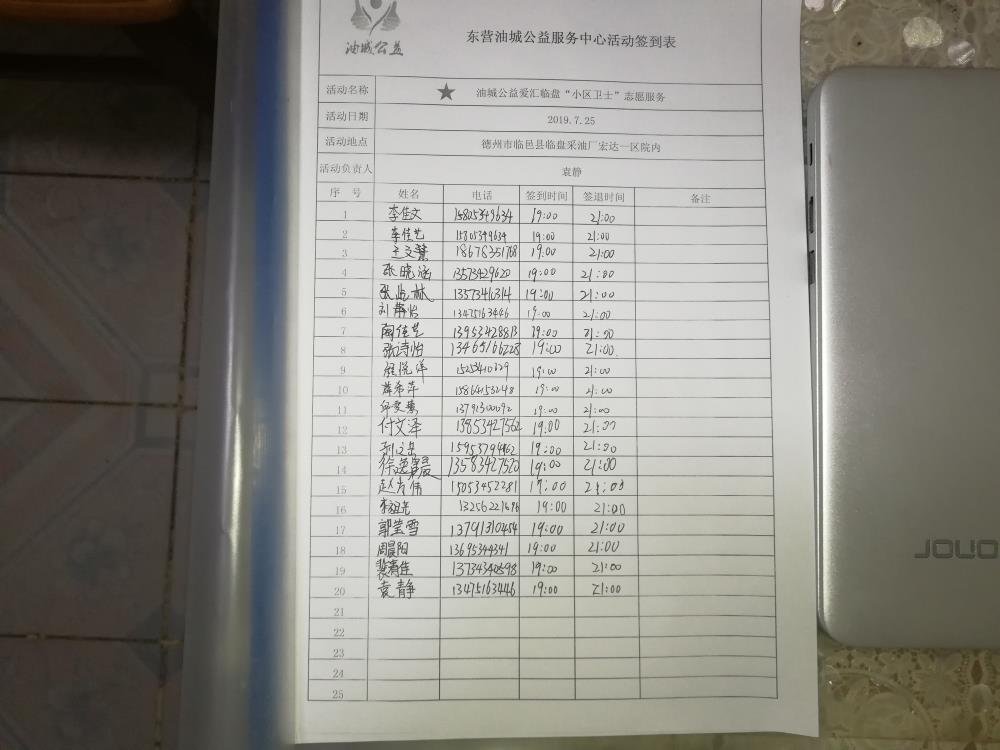 油城公益
东营油城公益服务中心活动签到表
活动名称 ★ 油城公益爱汇临盘“小区卫士”志愿服务
活动日期 2019.7.25
活动地点 德州市临邑县临盘采油厂宏达一区院内
活动负责人 袁静
序 号 姓名 电话 签到时间 签退时间 备注
1 李佳文 15805349634 19:00 21:00
2 李佳艺 15805349634 19:00 21:00
3 王文慧 18678351768 19:00 21:00
4 张晓涵 13573429620 19:00 21:00
5 13573416314 19:00 21:00
6 刘静怡 13475163446 19:00 21:00
7 陶佳艺 13953428813 19:00 21:00
8 张诗怡 13465166228 19:00 21:00
9 程悦洋 19:00 21:00
10 薛希萍 19:00 21:00
11 13791300092 19:00 21:00
12 付文泽 13853427562 19:00 21:00
13 19:00 21:00
14 13583427520 19:00 21:00
15 15053452281 19:00 21:00
16 19:00 21:00
17 郭莹雪 13791310454 19:00 21:00
18 周晨阳 13695344341 19:00 21:00
19 裴清佳 19:00 21:00
20 袁静 13475163446 19:00 21:00
21
22
23
24
25